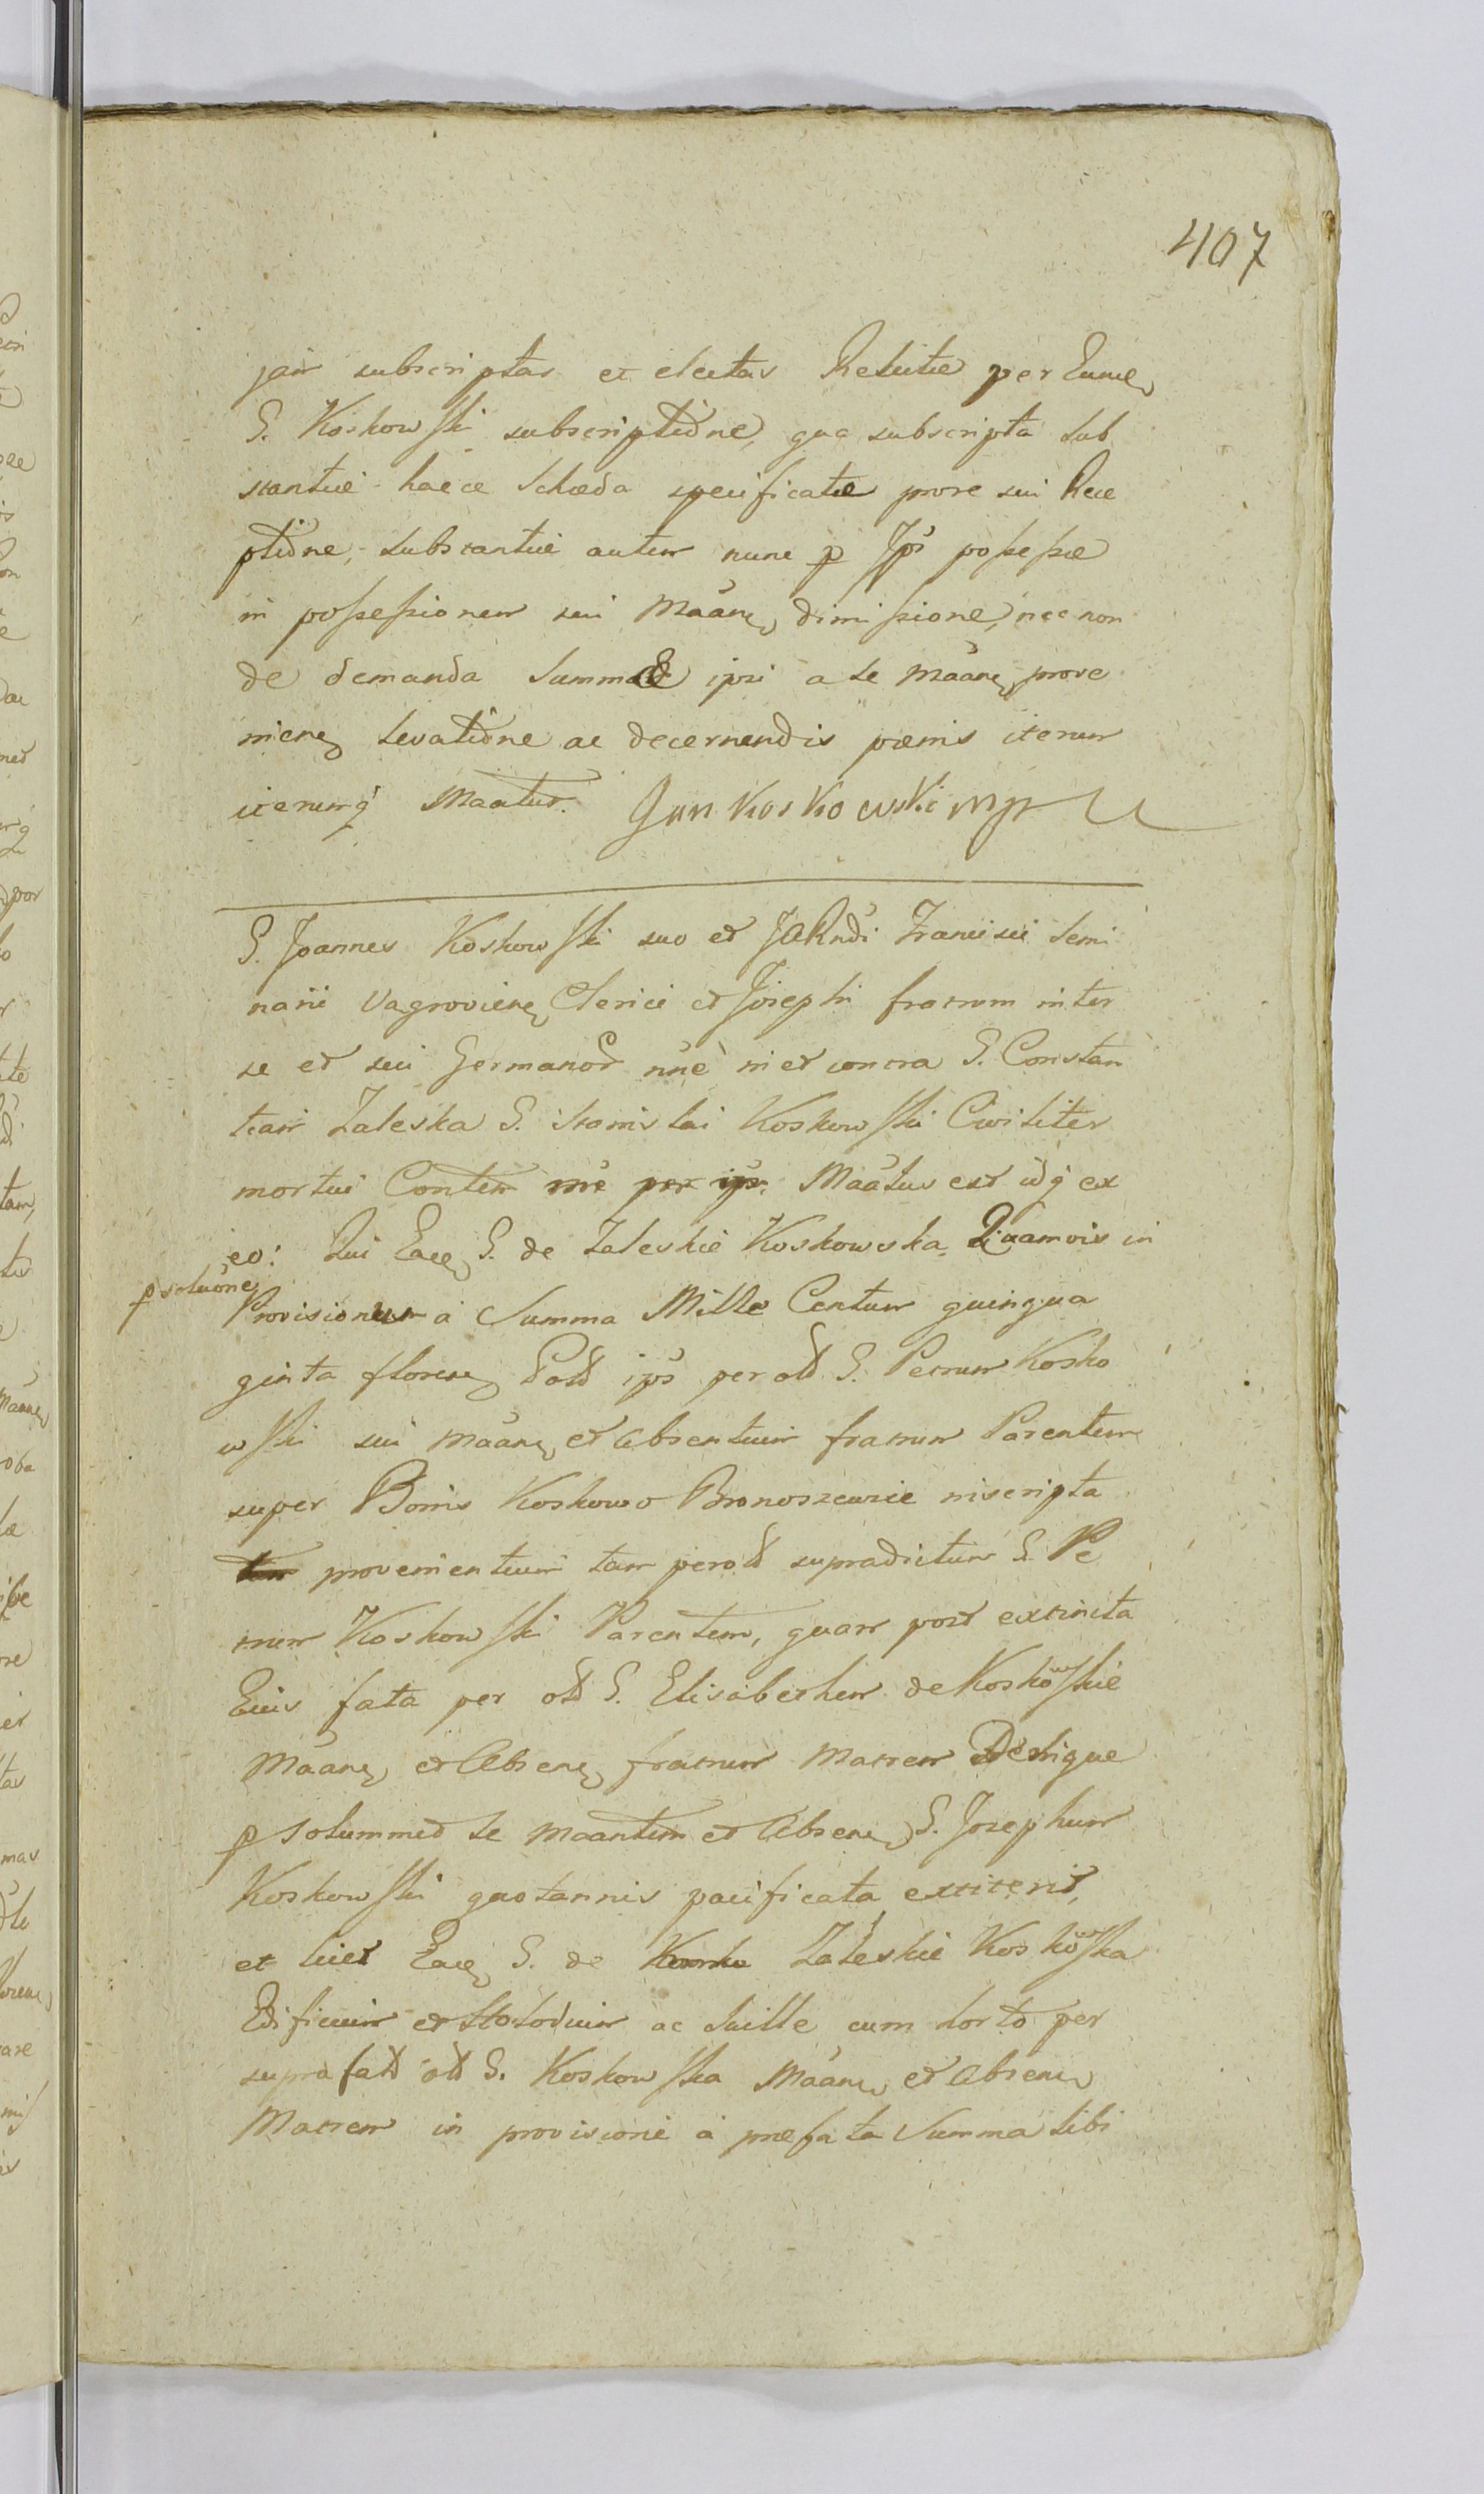 407
jam subscriptas et electas Relictæ per Eunde
G. Koskowski subscriptiõne, qua subscripta sub
stantiæ haece Schæda specificatæ prore sui Rece
ptiõne, substantiæ autem nunc p Ips possessæ
in possessionem sui Maãn dimissione, nec non
de demanda Summæ ipsi a se Maãn prove
nien levatiõne ac decernendis pœnis iterum
iterumq Maatur. Jan Koskowski mp
G. Joannes Koskowski suo et JARndi Francisci Semi
narii Vagrovien Clerici et Josephi fratrum inter
se et sui Germanor nne in et contra G. Constan
tiam Zaleska G. Stanislai Koskowski Civiliter
mortui Contem Maãtus est idq ex
eo: Qui Eade G. de Zaleskie Koskowska Quamvis in
p solutione
Provisionem a Summa Mille Centum quinqua
ginta floren Pold ips per old G. Petrum Kosko
wski sui Maãn et Absentium fratrum Parentem
super Bonis Koskowo Bronoszewice inscripta
provenientium tam per old supradictum G. Pe
trum Koskowski Parentem, quam post extincta
Eius fata per old G. Elisabethem de Koskowskie
Maãn et Absen fratrum Matrem Denique
p solummodo se Maantem et Absen G. Josephum
Koskowski quotannis pacificata extiterit,
et licet Eade G. de Zaleskie Koskowska
Edificium et Stodolum ac Suille cum horto per
suprafatt old G. Koskowska Maãn et Absen
Matrem in provisione a præfata Summa sibi